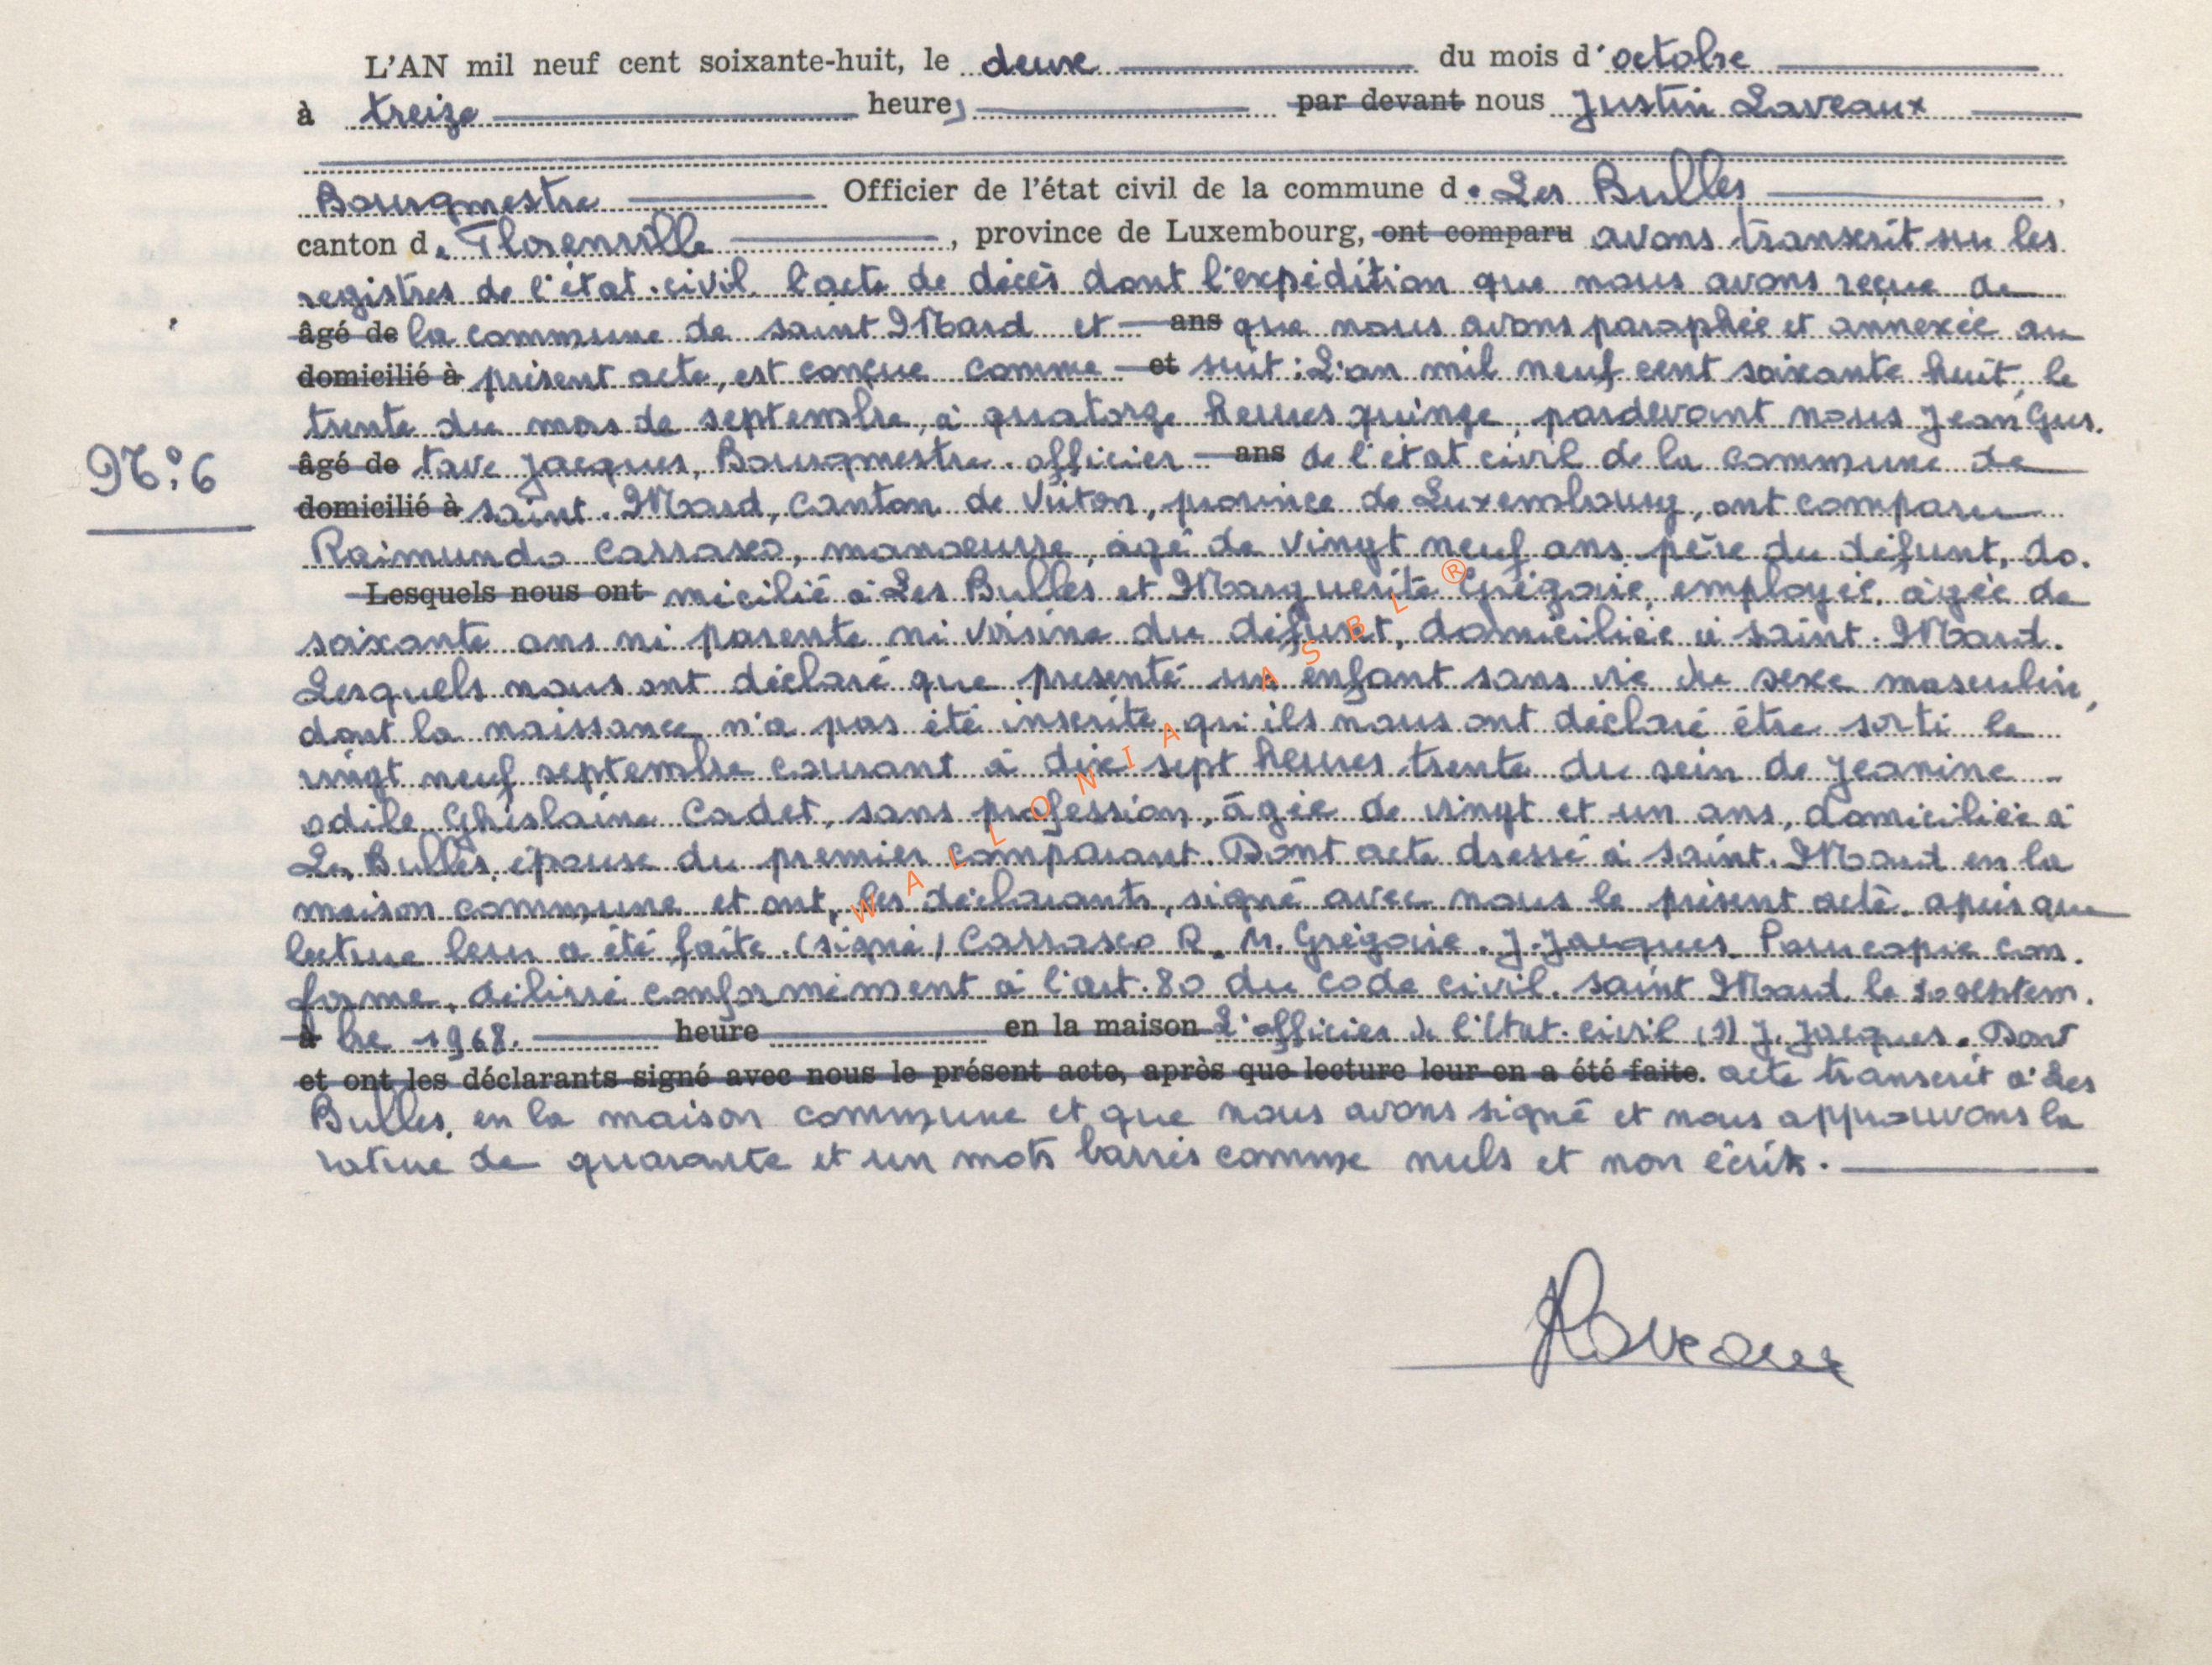 L'AN mil neuf cent soixante-huit, le deux du mois d'octobre
à treize heures par devant nous Justin Laveaux
Bourgmestre Officier de l'état civil de la commune de Les Bulles,
canton de Florenville, province de Luxembourg, ont comparu avons transcrit sur les
registres de l'état-civil, l'acte de décès dont l'expédition que nous avons reçue de
âgé de la commune de Saint-Mard et ans que nous avons paraphée et annexée au
domicilié à présent acte, est conçue comme et suit: L'an mil neuf cent soixante huit, le
trente du mois de septembre, à quatorze heures quinze, pardevant nous Jean Gus.
N° 6
âgé de tave Jacques, Bourgmestre officier ans de l'état civil de la commune de
domicilié à Saint-Mard, canton de Virton, province de Luxembourg, ont comparu
Raimundo Carrasco, manoeuvre, âgé de vingt neuf ans, père du défunt, do.
Lesquels nous ont micilié à Les Bulles et Marguerite Grégoire, employée, âgée de
soixante ans ni parente ni voisine du défunt, domiciliée à Saint-Mard.
Lesquels nous ont déclaré que presenté un enfant sans vie du sexe masculin,
dont la naissance n'a pas été inscrite, qu'ils nous ont déclaré être sorti le
vingt neuf septembre courant à dix sept heures trente du sein de Jeanine
Odile Ghislaine Cadet, sans profession, âgée de vingt et un ans, domiciliée à
Les Bulles, épouse du premier comparant. Dont acte dressé à Saint-Mard en la
maison commune et ont, les déclarants, signé avec nous le présent acte, après que
lecture leur a été faite. (signé) Carrasco R. M. Grégoire. J. Jacques. Pour copie con.
forme, délivré conformément à l'art. 80 du code civil. Saint Mard, le 30 septem.
à bre 1968. heure en la maison L'officier de l'Etat-civil (s) J. Jacques. Dont
et ont les déclarants signé avec nous le présent acte, après que lecture leur en a été faite. acte transcrit à Les
Bulles, en la maison commune et que nous avons signé et nous approuvons la
rature de quarante et un mots barrés comme nuls et non écrits.
Laveaux
WALLONIA ASBL ®